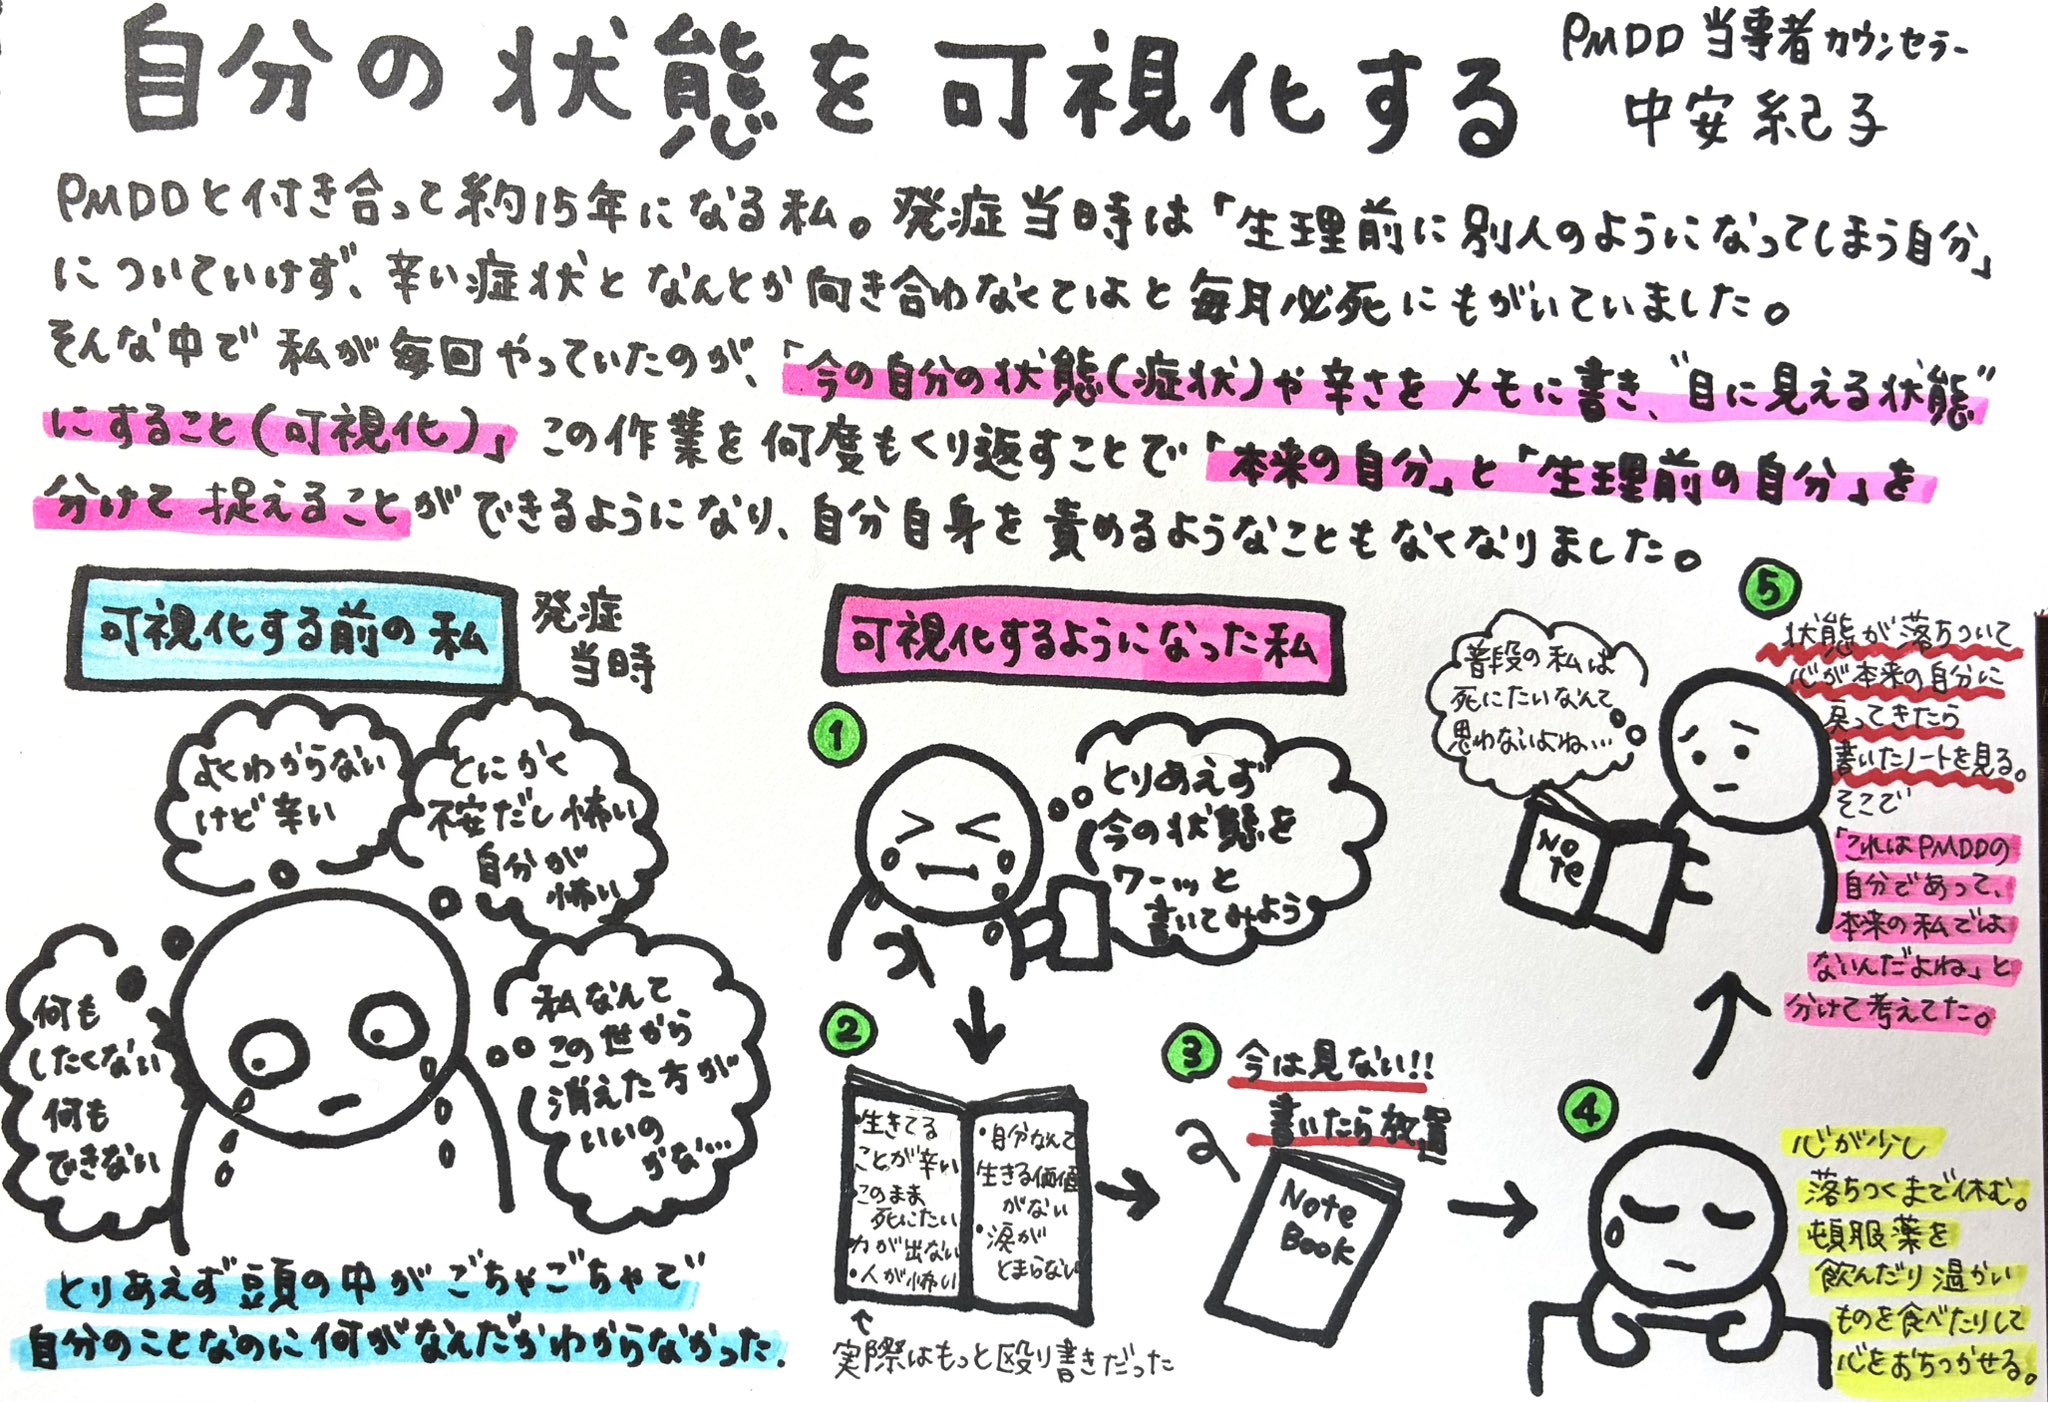 自分の状態を可視化する
PMDD当事者カウンセラー
中安紀子
PMDDと付き合って約15年になる私。発症当時は「生理前に別人のようになってしまう自分」
についていけず、辛い症状となんとか向き合わなくてはと毎月必死にもがいていました。
そんな中で私が毎回やっていたのが、「今の自分の状態(症状)や辛さをメモに書き、"目に見える状態"
にすること(可視化)」この作業を何度もくり返すことで「本来の自分」と「生理前の自分」を
分けて捉えることができるようになり、自分自身を責めるようなこともなくなりました。
可視化する前の私
発症
当時
よくわからない
けど辛い
とにかく
不安だし怖い
自分が
怖い
何も
したくない
何も
できない
私なんて
この世から
消えた方が
いいの
かな…
とりあえず頭の中がごちゃごちゃで
自分のことなのに何がなんだかわからなかった.
可視化するようになった私
1
とりあえず
今の状態を
ワーッと
書いてみよう
2
・生きてる
ことが辛い
このまま
死にたい
力が出ない
・人が怖い
・自分なんて
生きる価値
がない
・涙が
とまらない
↑
実際はもっと殴り書きだった
3
今は見ない!!
書いたら放置
Note
Book
4
心が少し
落ちつくまで休む。
頓服薬を
飲んだり温かい
ものを食べたりして
心をおちつかせる。
5
普段の私は
死にたいなんて
思わないよね…
No
te
状態が落ちついて
心が本来の自分に
戻ってきたら
書いたノートを見る。
そこで
「これはPMDDの
自分であって、
本来の私では
ないんだよね」と
分けて考えてた。